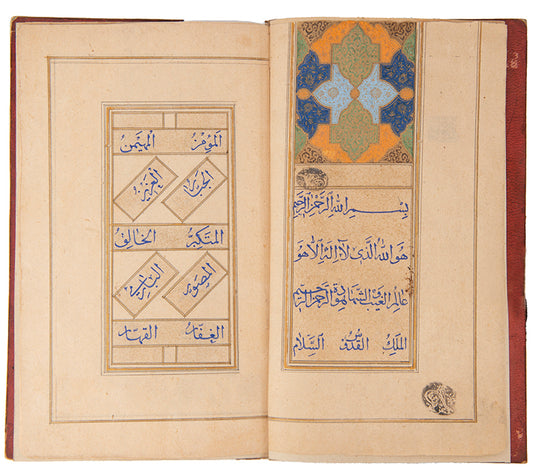 بسم الله الرحمن الرحيم
هو الله الذى لا اله الا هو
عالم الغيب والشهادة هو الرحمن الرحيم
الملك القدوس السلام
المؤمن المهيمن
الجبار العزيز
المتكبر الخالق
المصور البارئ
الغفار القهار